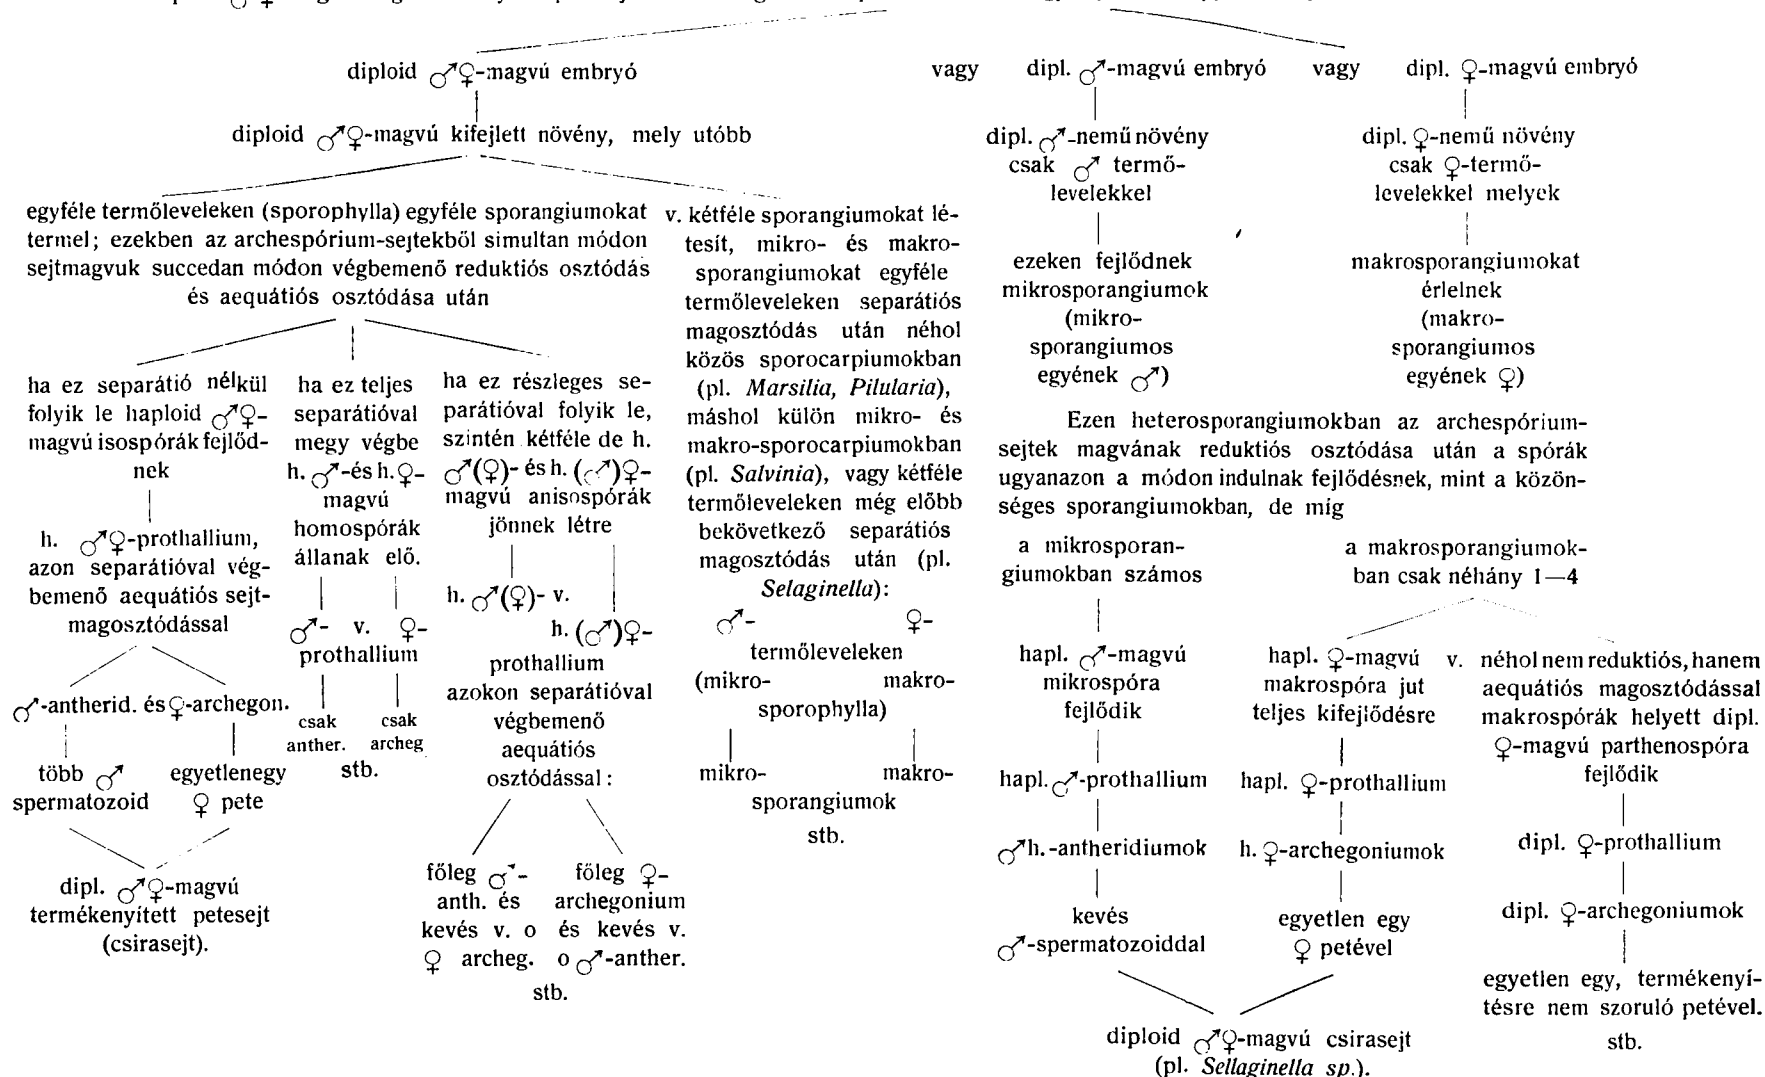 diploid ♂♀-magvú embryó
vagy dipl. ♂-magvú embryó vagy dipl. ♀-magvú embryó
diploid ♂♀-magvú kifejlett növény, mely utóbb
egyféle termőleveleken (sporophylla) egyféle sporangiumokat
termel; ezekben az archespórium-sejtekből simultan módon
sejtmagvuk succedan módon végbemenő reduktiós osztódás
és aequátiós osztódása után
ha ez separátió nélkül
folyik le haploid ♂♀-
magvú isospórák fejlőd-
nek
h. ♂♀-prothallium,
azon separátióval vég-
bemenő aequátiós sejt-
magosztódással
♂-antherid. és ♀-archegon.
több ♂
spermatozoid
egyetlenegy
♀ pete
dipl. ♂♀-magvú
termékenyített petesejt
(csirasejt).
ha ez teljes
separátióval
megy végbe
h. ♂-és h. ♀-
magvú
homospórák
állanak elő.
♂- v. ♀-
prothallium
csak csak
anther. archeg
stb.
ha ez részleges se-
parátióval folyik le,
szintén kétféle de h.
♂(♀)- és h. (♂)♀-
magvú anisospórák
jönnek létre
h. ♂(♀)- v.
h. (♂)♀-
prothallium
azokon separátióval
végbemenő
aequátiós
osztódással:
főleg ♂-
anth. és
kevés v. o
♀ archeg.
főleg ♀-
archegonium
és kevés v.
o ♂-anther.
stb.
v. kétféle sporangiumokat lé-
tesít, mikro- és makro-
sporangiumokat egyféle
termőleveleken separátiós
magosztódás után néhol
közös sporocarpiumokban
(pl. Marsilia, Pilularia),
máshol külön mikro- és
makro-sporocarpiumokban
(pl. Salvinia), vagy kétféle
termőleveleken még előbb
bekövetkező separátiós
magosztódás után (pl.
Selaginella):
♂- ♀-
termőleveleken
(mikro- makro-
sporophylla)
mikro- makro-
sporangiumok
stb.
dipl. ♂-nemű növény
csak ♂ termő-
levelekkel
ezeken fejlődnek
mikrosporangiumok
(mikro-
sporangiumos
egyének ♂)
dipl. ♀-nemű növény
csak ♀-termő-
levelekkel melyek
makrosporangiumokat
érlelnek
(makro-
sporangiumos
egyének ♀)
Ezen heterosporangiumokban az archespórium-
sejtek magvának reduktiós osztódása után a spórák
ugyanazon a módon indulnak fejlődésnek, mint a közön-
séges sporangiumokban, de míg
a mikrosporan-
giumokban számos
hapl. ♂-magvú
mikrospóra
fejlődik
hapl. ♂-prothallium
♂ h.-antheridiumok
kevés
♂-spermatozoiddal
a makrosporangiumok-
ban csak néhány 1—4
hapl. ♀-magvú
makrospóra jut
teljes kifejlődésre
hapl. ♀-prothallium
h. ♀-archegoniumok
egyetlen egy
♀ petével
diploid ♂♀-magvú csirasejt
(pl. Sellaginella sp.).
v. néhol nem reduktiós, hanem
aequátiós magosztódással
makrospórák helyett dipl.
♀-magvú parthenospóra
fejlődik
dipl. ♀-prothallium
dipl. ♀-archegoniumok
egyetlen egy, termékenyí-
tésre nem szoruló petével.
stb.